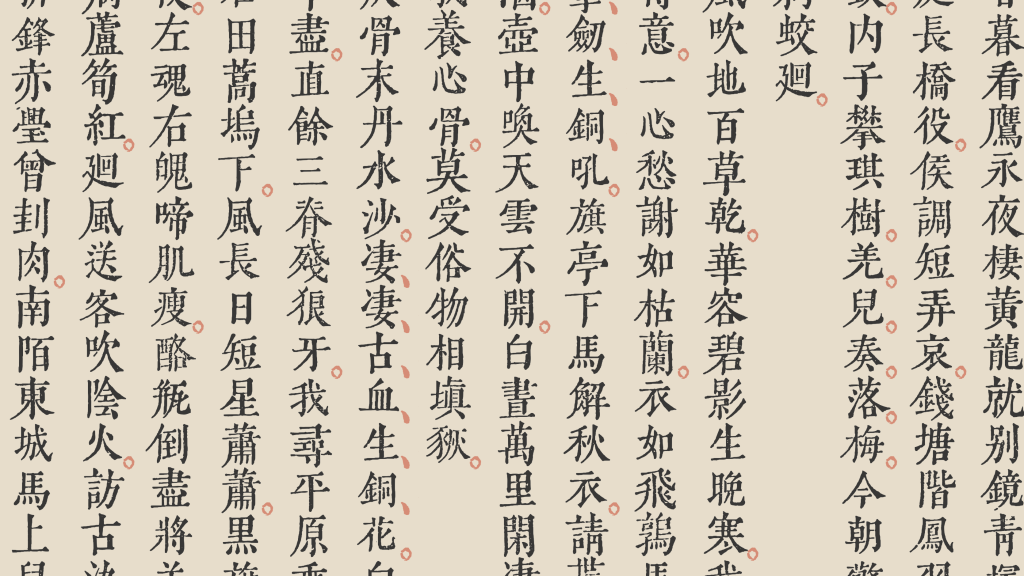 暮看鷹永夜棲黃龍就別鏡青
長橋役侯調短弄哀錢塘階鳳羽
内子攀琪樹羌兒奏落梅今朝擎
刺蛟廻
風吹地百草乾華容碧影生晚寒我
得意一心愁謝如枯蘭衣如飛鶉馬
劒生銅吼旗亭下馬解秋衣請貰
酒壺中喚天雲不開白晝萬里閑凄
我養心骨莫受俗物相塡豗
灰骨末丹水沙凄凄古血生銅花白
中盡直餘三脊殘狼牙我尋平原乘
石田蒿塢下風長日短星蕭蕭黑旗
夜左魂右魄啼肌瘦酪瓶倒盡將羊
病蘆筍紅廻風送客吹陰火訪古汍
折鋒赤璺曾刲肉南陌東城馬上兒